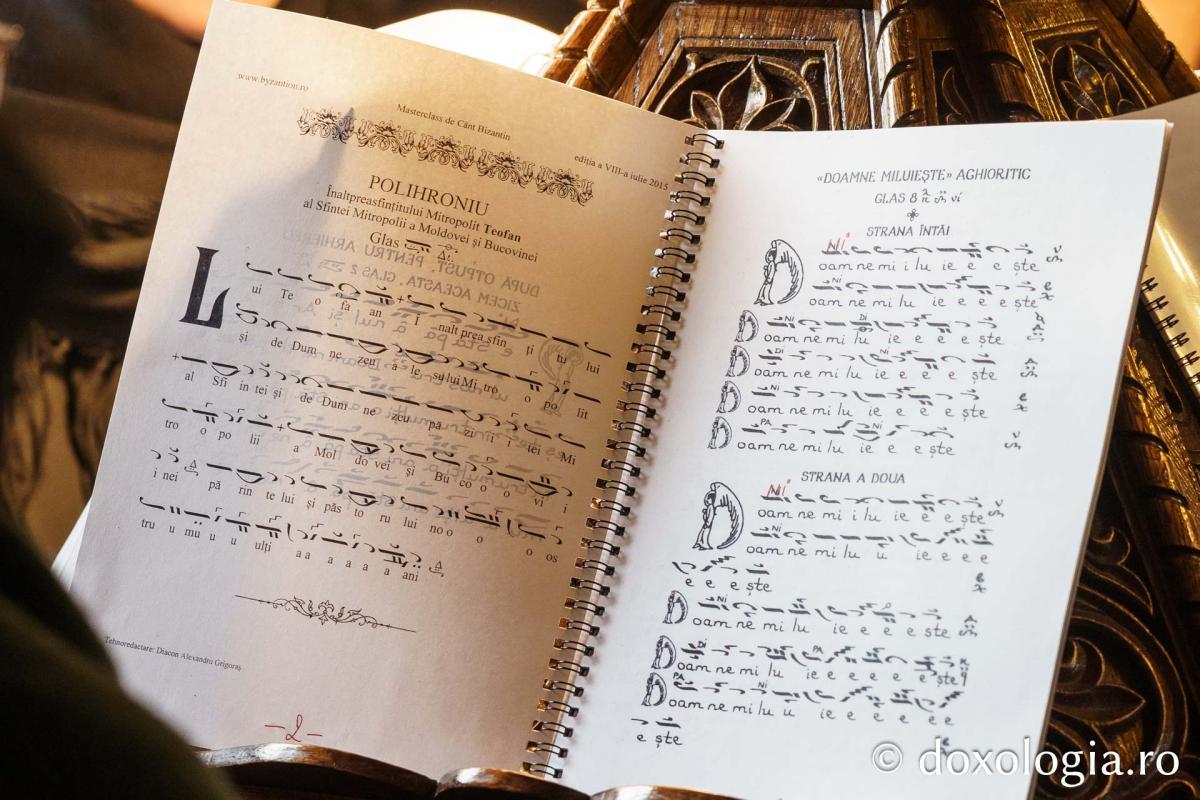 www.byzantion.ro
Masterclass de Cânt Bizantin
ediția a VIII-a iulie 2015
POLIHRONIU
Înaltpreasfințitului Mitropolit Teofan
al Sfintei Mitropolii a Moldovei și Bucovinei
Glas
L ui Te o fa an Î nalt prea sfin ți tu lui
și de Dum ne zeu a le su lui Mi tro o po lit
al Sfi in tei și de Dum ne zeu pă zi i tei Mi
tro o po lii a Mol do vei și Bu co o o vi i
i nei pă rin te lui și păs to ru lui no o o o os
tru u mu u u ulți a a a a a a ani
Tehnoredactare: Diacon Alexandru Grigoraș
-2-
«DOAMNE MILUIEȘTE» AGHIORITIC
GLAS 8
STRANA ÎNTÂI
Ni
Doam ne mi i lu ie e e ește
Ni
oam ne mi lu ie e e ește
Ni Di
Doam ne mi lu ie e e ește
Di Ni
Doam ne mi lu ie e e ește
Ni
Doam ne mi lu ie e e ește
PA Ni
Doam ne mi lu ie e e ește
STRANA A DOUA
Ni
Doam ne mi i lu ie e e ește
Ni
oam ne mi lu u ie e e e
e e e ește
Ni
Doam ne mi lu ie e e e ște
Di PA
Doam ne mi lu ie e e e e ște
PA Ni
Doam ne mi lu u ie e e e e e
e ște
© doxologia.ro